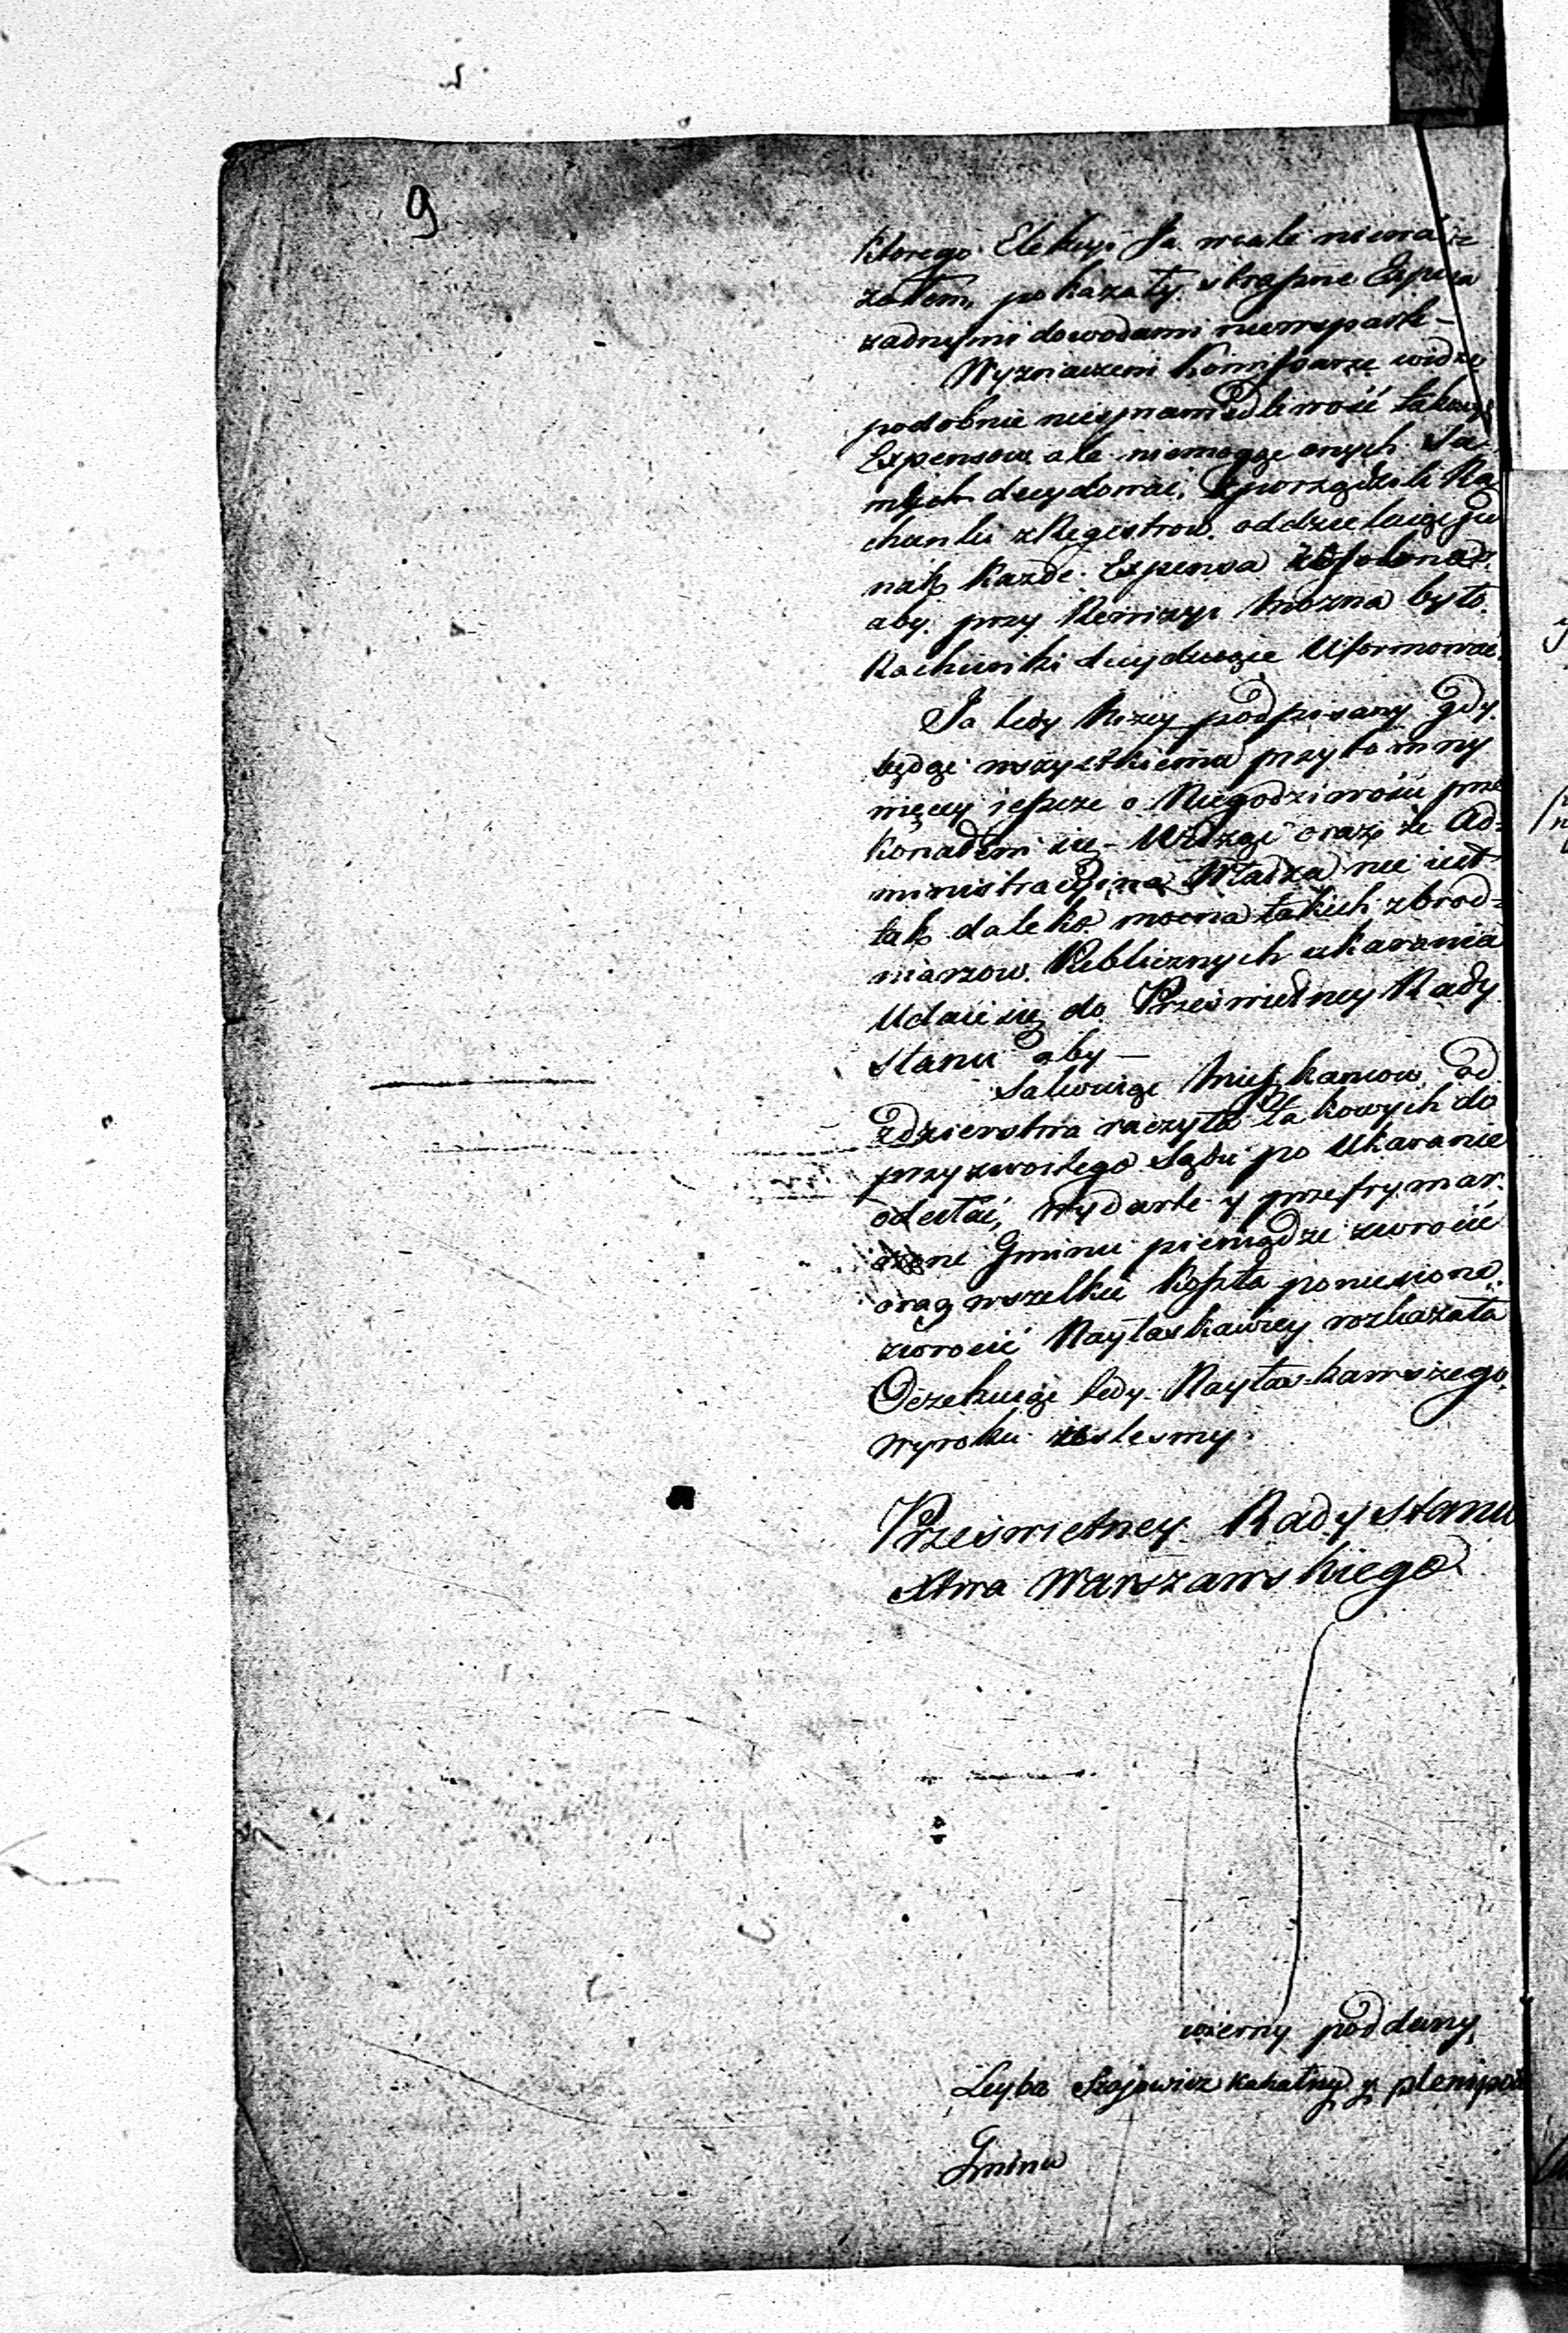 9
ktorego Elekcyi Ja wcale
zatem, pokazały straszne Expensa
zadnymi dowodami niewsparte –
Wyznaczeni Kommissarze widząc
podobnie niesprawiedliwość takowych
Expensow ale niemogąc onych Sa-
mych decydować, sporządzili Ra
chunki z Regestrow oddzielaiąc jed
nak każde Expensa
aby przy Rewizyi można było
Rachunki decyduiące Uformować
Ja tedy Niżey podpisany gdy
będąc wszystkiemu przytomny
więcey ieszcze o Niegodziwości prze
konałem się – Widząc oraz że Ad=
ministracyina Władza nie iest
tak daleko mocna takich zbrod=
niarzow Publicznych ukarania
Udaie się do Prześwietney Rady
Stanu aby –
Salwuiąc Mieszkancow od
zdzierstwa raczyła takowych do
przyzwoitego Sądu po Ukaranie
odesłać, wydarte y przefrymar
czone Gminu pieniądze zwrocić
oraz wszelkie koszta poniesione
zwrocić Nayłaskawiey rozkazała
Oczekuiąc tedy Nayłaskawszego
wyroku iestesmy
Prześwietney Rady Stanu
Xtwa Warszawskiego
wierny poddany
Leyba Szajowicz kahalny y plenipot
Gminu